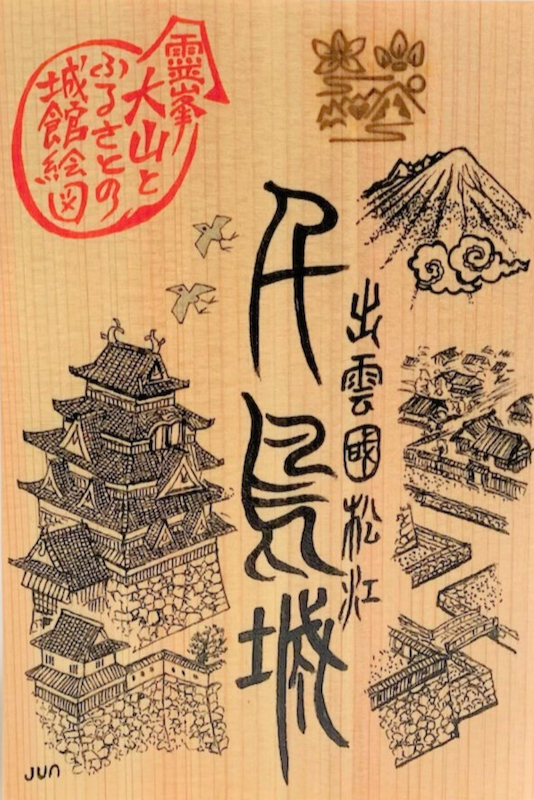 霊峯
大山と
ふるさとの
城館絵図
出雲國松江
千鳥城
JUN